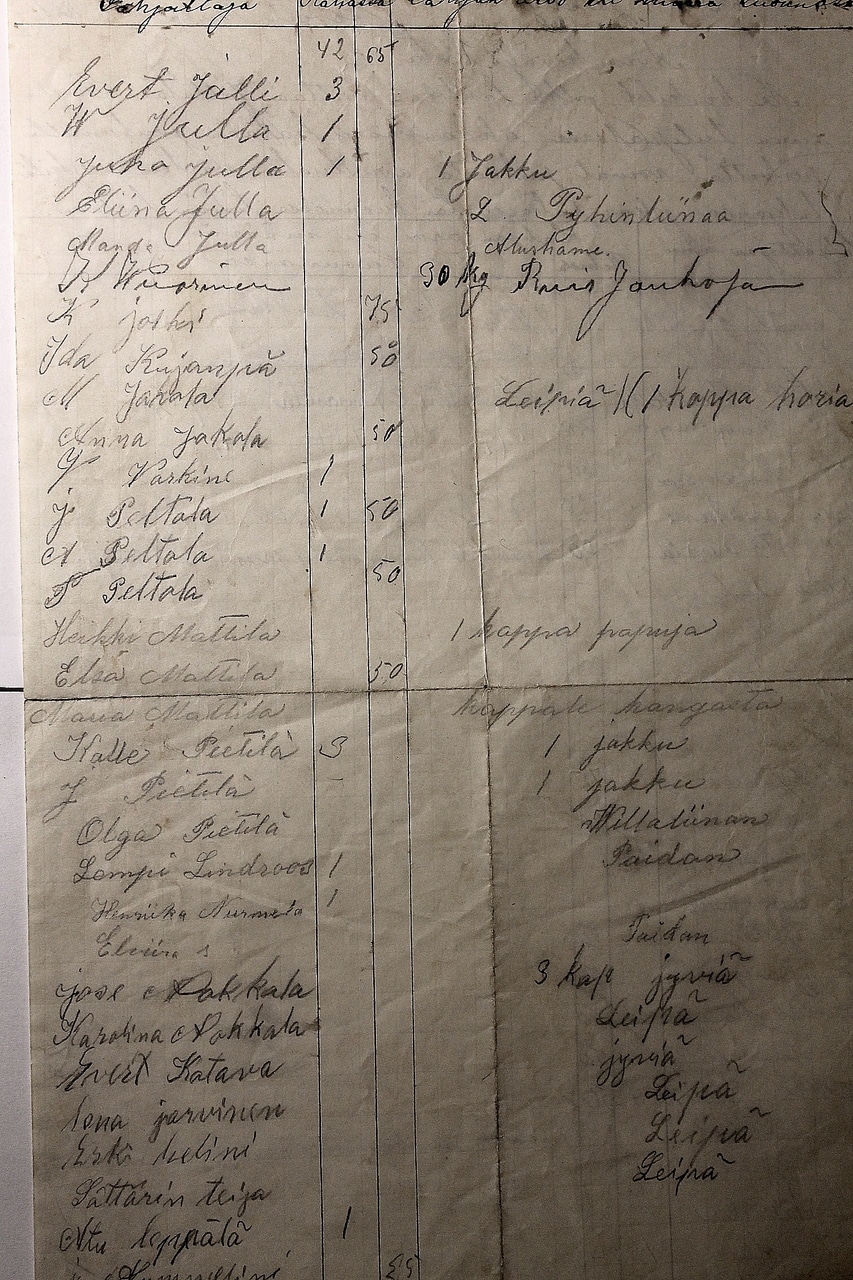 42 65
Evert Jalli 3
W Julla 1
Juho Julla 1 1 Jakku
Eliina Julla 2. Pyhinliinaa
Manda Julla Alushame.
K Wuorinen 30 kg Ruis Jauhoja
K 75
Ida Kujanpä 50
M Jakola Leipiä 1 kappa
Anna Jakola 50
Varkine 1
J Peltola 1 50
A Peltola 1
Peltola 50
Heikki Mattila 1 kappa papuja
Elsa Mattila 50
Maria Mattila kappale kangasta
Kalle Pietilä 3 1 jakku
J Pietilä - 1 jakku
Olga Pietilä Willaliinan
Lempi Lindroos 1 Paidan
Henriika Nurmela 1
Elviira s Paidan
jose Pakkala 3 kap jyviä
Karolina Pakkala Leipä
Evert Katava jyviä
jarvinen Leipä
helini Leipä
Sättärin teija Leipä
leppälä 1
25